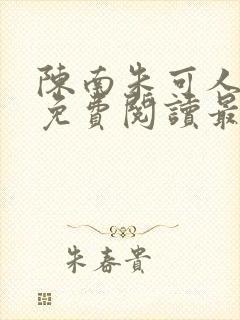 陳南朱可人
免費閱讀最
朱春貴